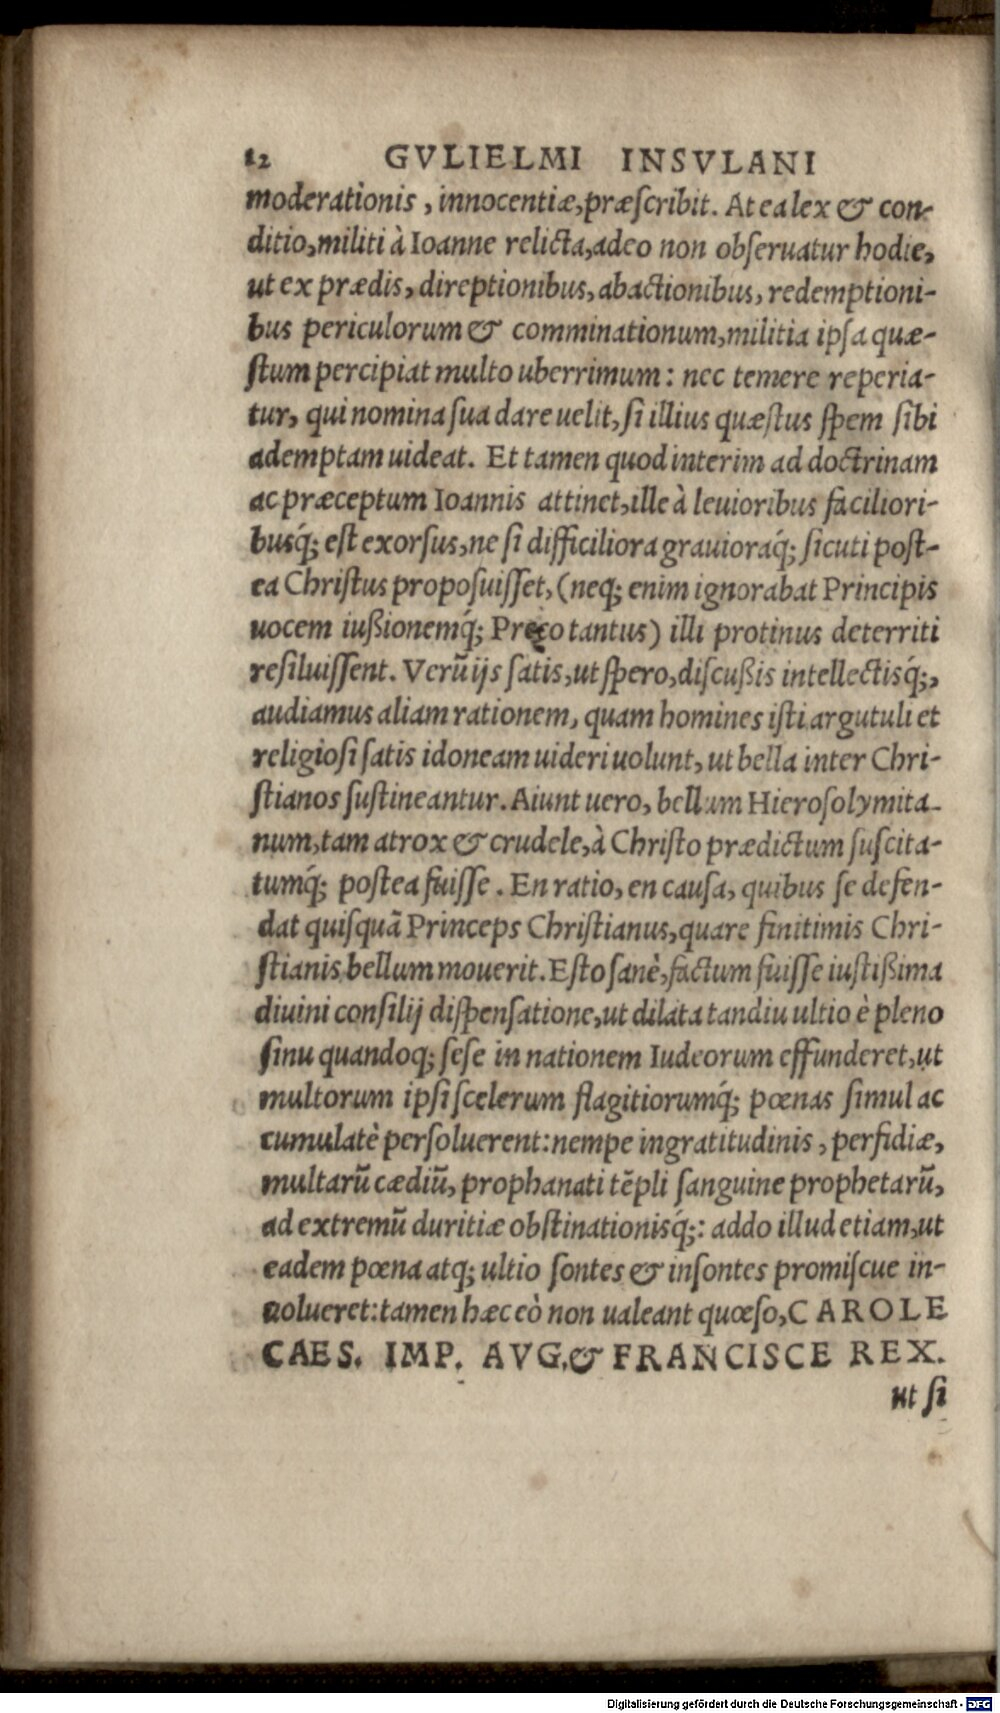 12 GVLIELMI INSVLANI
moderationis, innocentiæ, præſcribit. At ea lex & con-
ditio, militi à Ioanne relicta, adeo non obſeruatur hodie,
ut ex prædis, direptionibus, abactionibus, redemptioni-
bus periculorum & comminationum, militia ipſa quæ-
ſtum percipiat multo uberrimum: nec temere reperia-
tur, qui nomina ſua dare uelit, ſi illius quæſtus ſpem ſibi
ademptam uideat. Et tamen quod interim ad doctrinam
ac præceptum Ioannis attinet, ille à leuioribus faciliori-
busq́; eſt exorſus, ne ſi difficiliora grauioraq́; ſicuti poſt-
ea Chriſtus propoſuiſſet, (neq; enim ignorabat Principis
uocem iußionemq́; Preco tantus) illi protinus deterriti
reſiluiſſent. Verũ ijs ſatis, ut ſpero, diſcußis intellectisq́;,
audiamus aliam rationem, quam homines iſti argutuli et
religioſi ſatis idoneam uideri uolunt, ut bella inter Chri-
ſtianos ſuſtineantur. Aiunt uero, bellum Hieroſolymita-
num, tam atrox & crudele, à Chriſto prædictum ſuſcita-
tumq́; poſtea fuiſſe. En ratio, en cauſa, quibus ſe defen-
dat quiſquã Princeps Chriſtianus, quare finitimis Chri-
ſtianis bellum mouerit. Eſto ſanè, factum fuiſſe iuſtißima
diuini conſilij diſpenſatione, ut dilata tandiu ultio è pleno
ſinu quandoq; ſeſe in nationem Iudeorum effunderet, ut
multorum ipſi ſcelerum flagitiorumq́; pœnas ſimul ac
cumulatè perſoluerent: nempe ingratitudinis, perfidiæ,
multarũ cædiũ, prophanati tẽpli ſanguine prophetarũ,
ad extremũ duritiæ obſtinationisq́;: addo illud etiam, ut
eadem pœna atq; ultio ſontes & inſontes promiſcue in-
uolueret: tamen hæc eò non ualeant quœſo, CAROLE
CAES. IMP. AVG. & FRANCISCE REX.
ut ſi
Digitalisierung gefördert durch die Deutsche Forschungsgemeinschaft - DFG